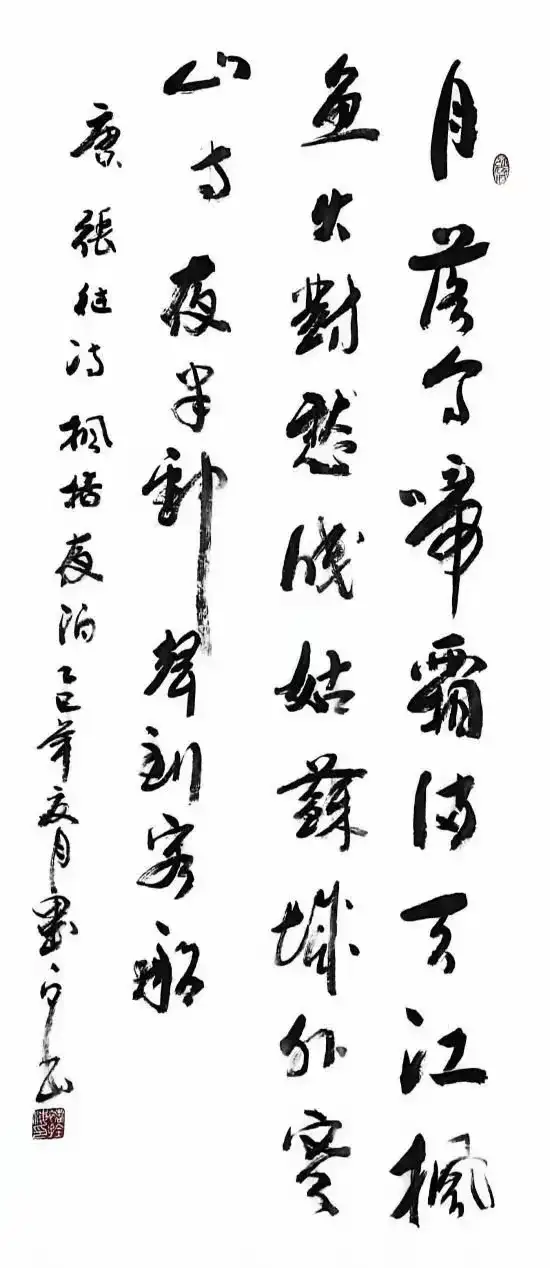 月落烏啼霜滿天江楓
魚火對愁眠姑蘇城外寒
山寺夜半鐘聲到客船
唐張継诗楓橋夜泊乙巳年夏月墨书